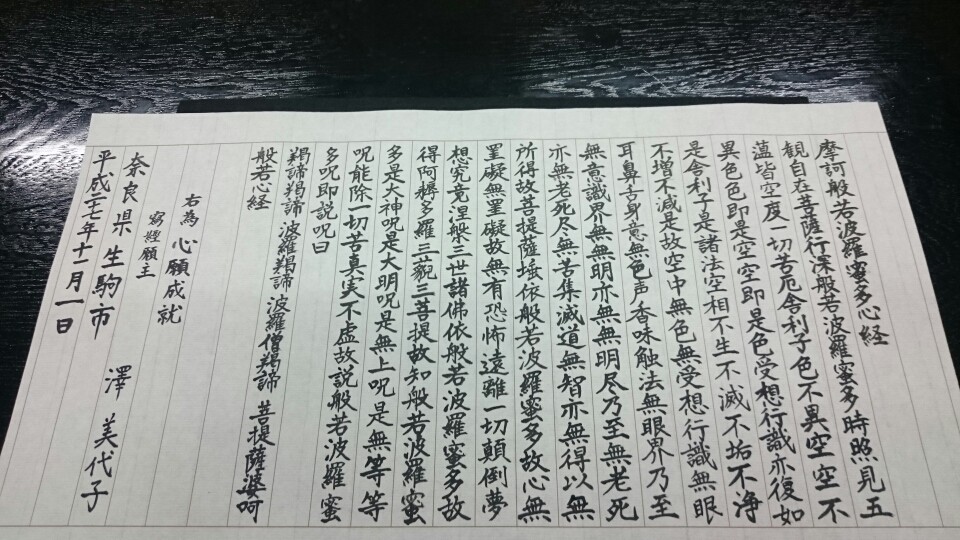 摩訶般若波羅蜜多心経
観自在菩薩行深般若波羅蜜多時照見五
薀皆空度一切苦厄舎利子色不異空空不
異色色即是空空即是色受想行識亦復如
是舎利子是諸法空相不生不滅不垢不浄
不増不減是故空中無色無受想行識無眼
耳鼻舌身意無色声香味触法無眼界乃至
無意識界無無明亦無無明尽乃至無老死
亦無老死尽無苦集滅道無智亦無得以無
所得故菩提薩埵依般若波羅蜜多故心無
罣礙無罣礙故無有恐怖遠離一切顛倒夢
想究竟涅槃三世諸佛依般若波羅蜜多故
得阿耨多羅三藐三菩提故知般若波羅蜜
多是大神呪是大明呪是無上呪是無等等
呪能除一切苦真実不虚故説般若波羅蜜
多呪即説呪曰
羯諦羯諦 波羅羯諦 波羅僧羯諦 菩提薩婆呵
般若心経
右為 心願成就
寫經願主
奈良県生駒市 澤 美代子
平成二十七年十一月一日